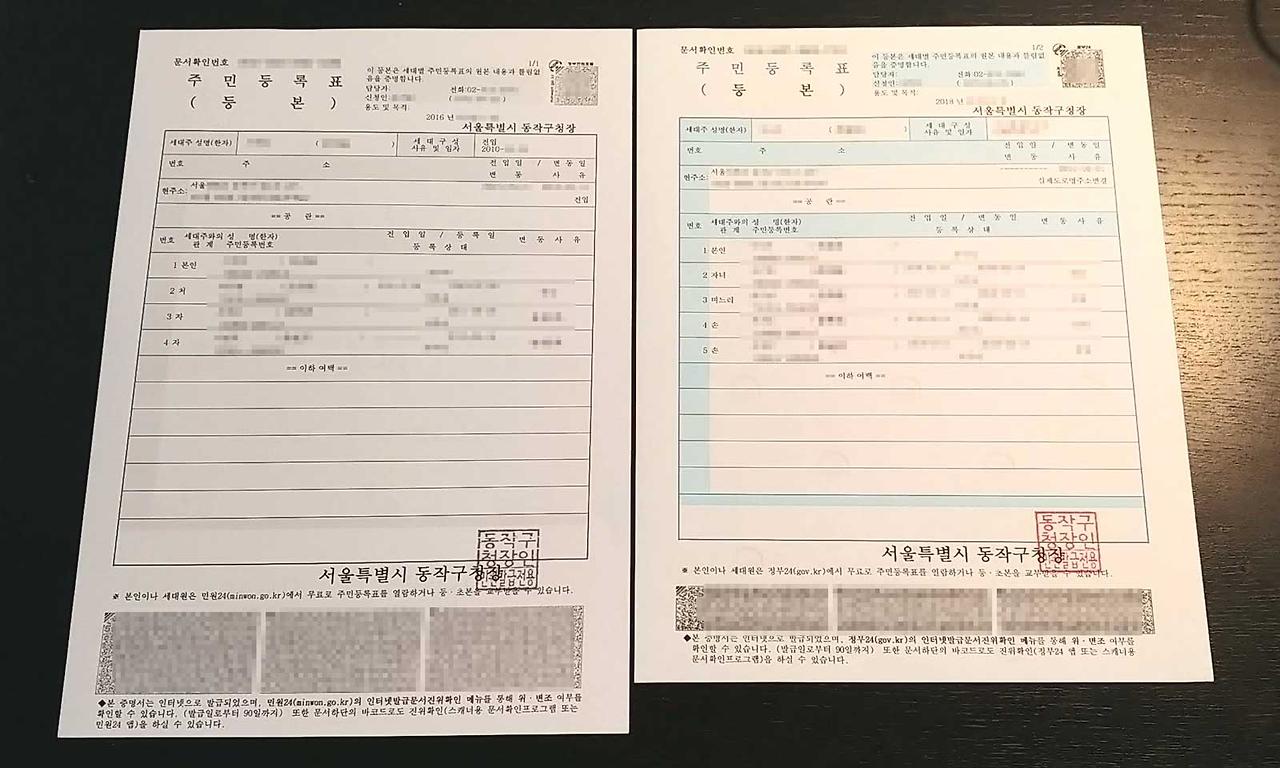 문서확인번호
1/1
주 민 등 록 표
( 등 본 )
이 등본은 세대별 주민등록표의 원본 내용과 틀림없
음을 증명합니다.
담당자: 전화:02-
신청인: ( )
용도 및 목적:
2016 년
서울특별시 동작구청장
세대주 성명(한자) ( ) 세 대 구 성 사유 및 일자 전입 2010-
번호 주 소 전 입 일 / 변 동 일
변 동 사 유
현주소: 서울
전입
== 공 란 ==
번호 세대주와의 성 명(한자) 전 입 일 / 등 록 일 변 동 사 유
관 계 주민등록번호 등 록 상 태
1 본인
2 처
3 자
4 자
== 이하 여백 ==
동작구
청장인
민원발급전용
서울특별시 동작구청장
※ 본인이나 세대원은 민원24(minwon.go.kr)에서 무료로 주민등록표를 열람하거나 등·초본을 교부받을 수 있습니다.
◆본 증명서는 인터넷으로 발급되었으며, 민원24(minwon.go.kr)의 인터넷발급문서진위확인 메뉴를 통해 위·변조 여부를
확인할 수 있습니다. (발급일로부터 90일까지) 또한 문서하단의 바코드로도 진위확인(스캐너용 문서확인프로그램 또는
민원24 앱)을 하실 수 있습니다.
문서확인번호
1/2
주 민 등 록 표
( 등 본 )
이 등본은 세대별 주민등록표의 원본 내용과 틀림없
음을 증명합니다.
담당자: 전화:02-
신청인: ( )
용도 및 목적:
2018 년
서울특별시 동작구청장
세대주 성명(한자) ( ) 세 대 구 성 사유 및 일자
번호 주 소 전 입 일 / 변 동 일
변 동 사 유
현주소: 서울
== 공 란 ==
번호 세대주와의 성 명(한자) 전 입 일 / 변 동 일 변 동 사 유
관 계 주민등록번호 등 록 상 태
1 본인
2 자녀
3 며느리
4 손
5 손
== 이하 여백 ==
동작구
청장인
민원발급전용
서울특별시 동작구청장
※ 본인이나 세대원은 정부24(gov.kr)에서 무료로 주민등록표를 열람하거나 등·초본을 교부받을 수 있습니다.
◆본 증명서는 인터넷으로 발급되었으며, 정부24(gov.kr)의 인터넷발급문서진위확인 메뉴를 통해 위·변조 여부를
확인할 수 있습니다. (발급일로부터 90일까지) 또한 문서하단의 바코드로도 진위확인(정부24 앱 또는 스캐너용
문서확인프로그램)을 하실 수 있습니다.